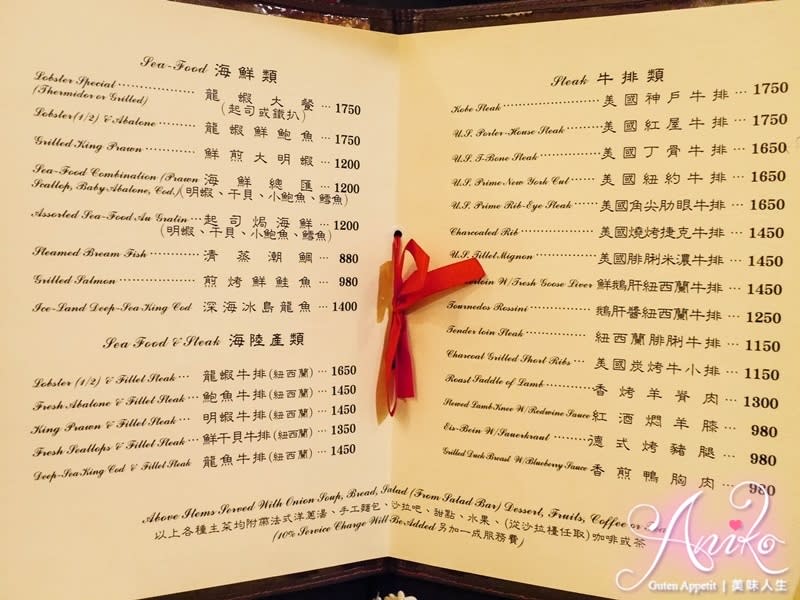 Sea-Food 海鮮類
Lobster Special 龍蝦大餐 1750
(Thermidor or Grilled) (起司或鐵扒)
Lobster (1/2) & Abalone 龍蝦鮮鮑魚 1750
Grilled King Prawn 鮮煎大明蝦 1200
Sea-Food Combination (Prawn 海鮮總匯 1200
Scallop, Baby Abalone, Cod,) (明蝦、干貝、小鮑魚、鱈魚)
Assorted Sea-Food Au Gratin 起司焗海鮮 1200
(明蝦、干貝、小鮑魚、鱈魚)
Steamed Bream Fish 清蒸潮鯛 880
Grilled Salmon 煎烤鮮鮭魚 980
Ice-Land Deep-Sea King Cod 深海冰島龍魚 1400
Sea Food & Steak 海陸產類
Lobster (1/2) & Fillet Steak 龍蝦牛排(紐西蘭) 1650
Fresh Abalone & Fillet Steak 鮑魚牛排(紐西蘭) 1450
King Prawn & Fillet Steak 明蝦牛排(紐西蘭) 1450
Fresh Scallops & Fillet Steak 鮮干貝牛排(紐西蘭) 1350
Deep-Sea King Cod & Fillet Steak 龍魚牛排(紐西蘭) 1450
Steak 牛排類
Kobe Steak 美國神戶牛排 1750
U.S. Porter-House Steak 美國紅屋牛排 1750
U.S. T-Bone Steak 美國丁骨牛排 1650
U.S. Prime New York Cut 美國紐約牛排 1650
U.S. Prime Rib-Eye Steak 美國角尖肋眼牛排 1650
Charcoaled Rib 美國燒烤捷克牛排 1450
U.S. Fillet Mignon 美國腓脷米濃牛排 1450
W/Fresh Goose Liver 鮮鵝肝紐西蘭牛排 1450
Tournedos Rossini 鵝肝醬紐西蘭牛排 1250
Tender loin Steak 紐西蘭腓脷牛排 1150
Charcoal Grilled Short Ribs 美國炭烤牛小排 1150
Roast Saddle of Lamb 香烤羊脊肉 1300
Stewed Lamb Knee W/Redwine Sauce 紅酒燜羊膝 980
Eis-Bein W/Sauerkraut 德式烤豬腿 980
Grilled Duck Breast W/Blueberry Sauce 香煎鴨胸肉 980
Above Items Served With Onion Soup, Bread, Salad (From Salad Bar) Dessert, Fruits, Coffee or Tea
以上各種主菜均附蘭法式洋蔥湯、手工麵包、沙拉吧、甜點、水果、(從沙拉檯任取)咖啡或茶
(10% Service Charge Will Be Added 另加一成服務費)
Aniko
Guten Appetit | 美味人生